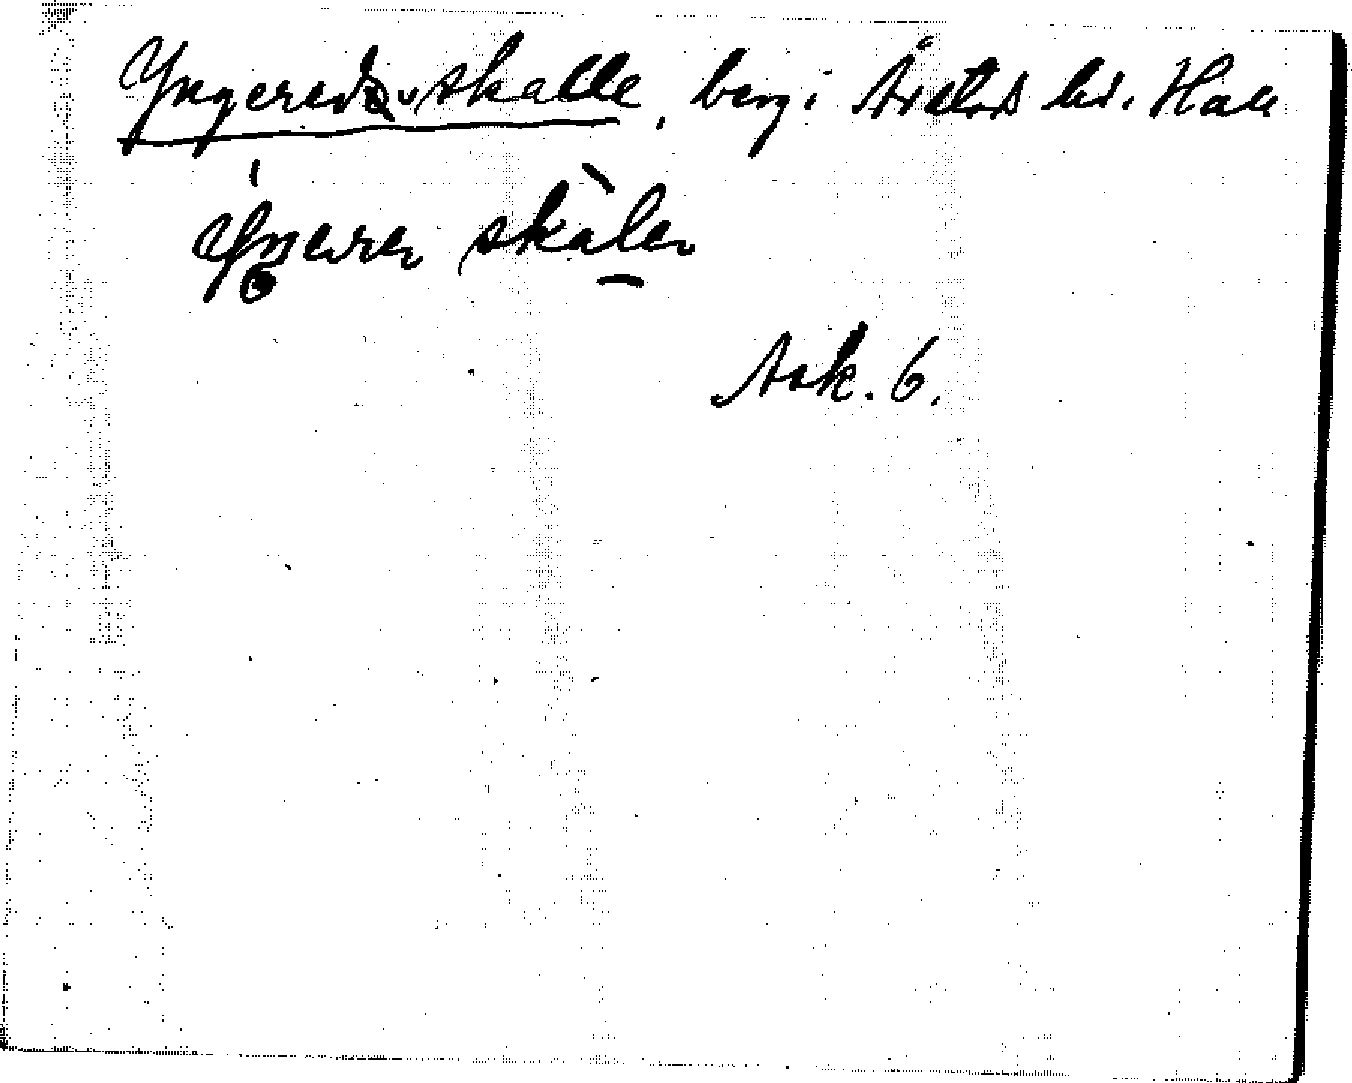 Yngereds skalle, berg i Årstads hd. Hall
Yŋerer skalen
Ask. 6.